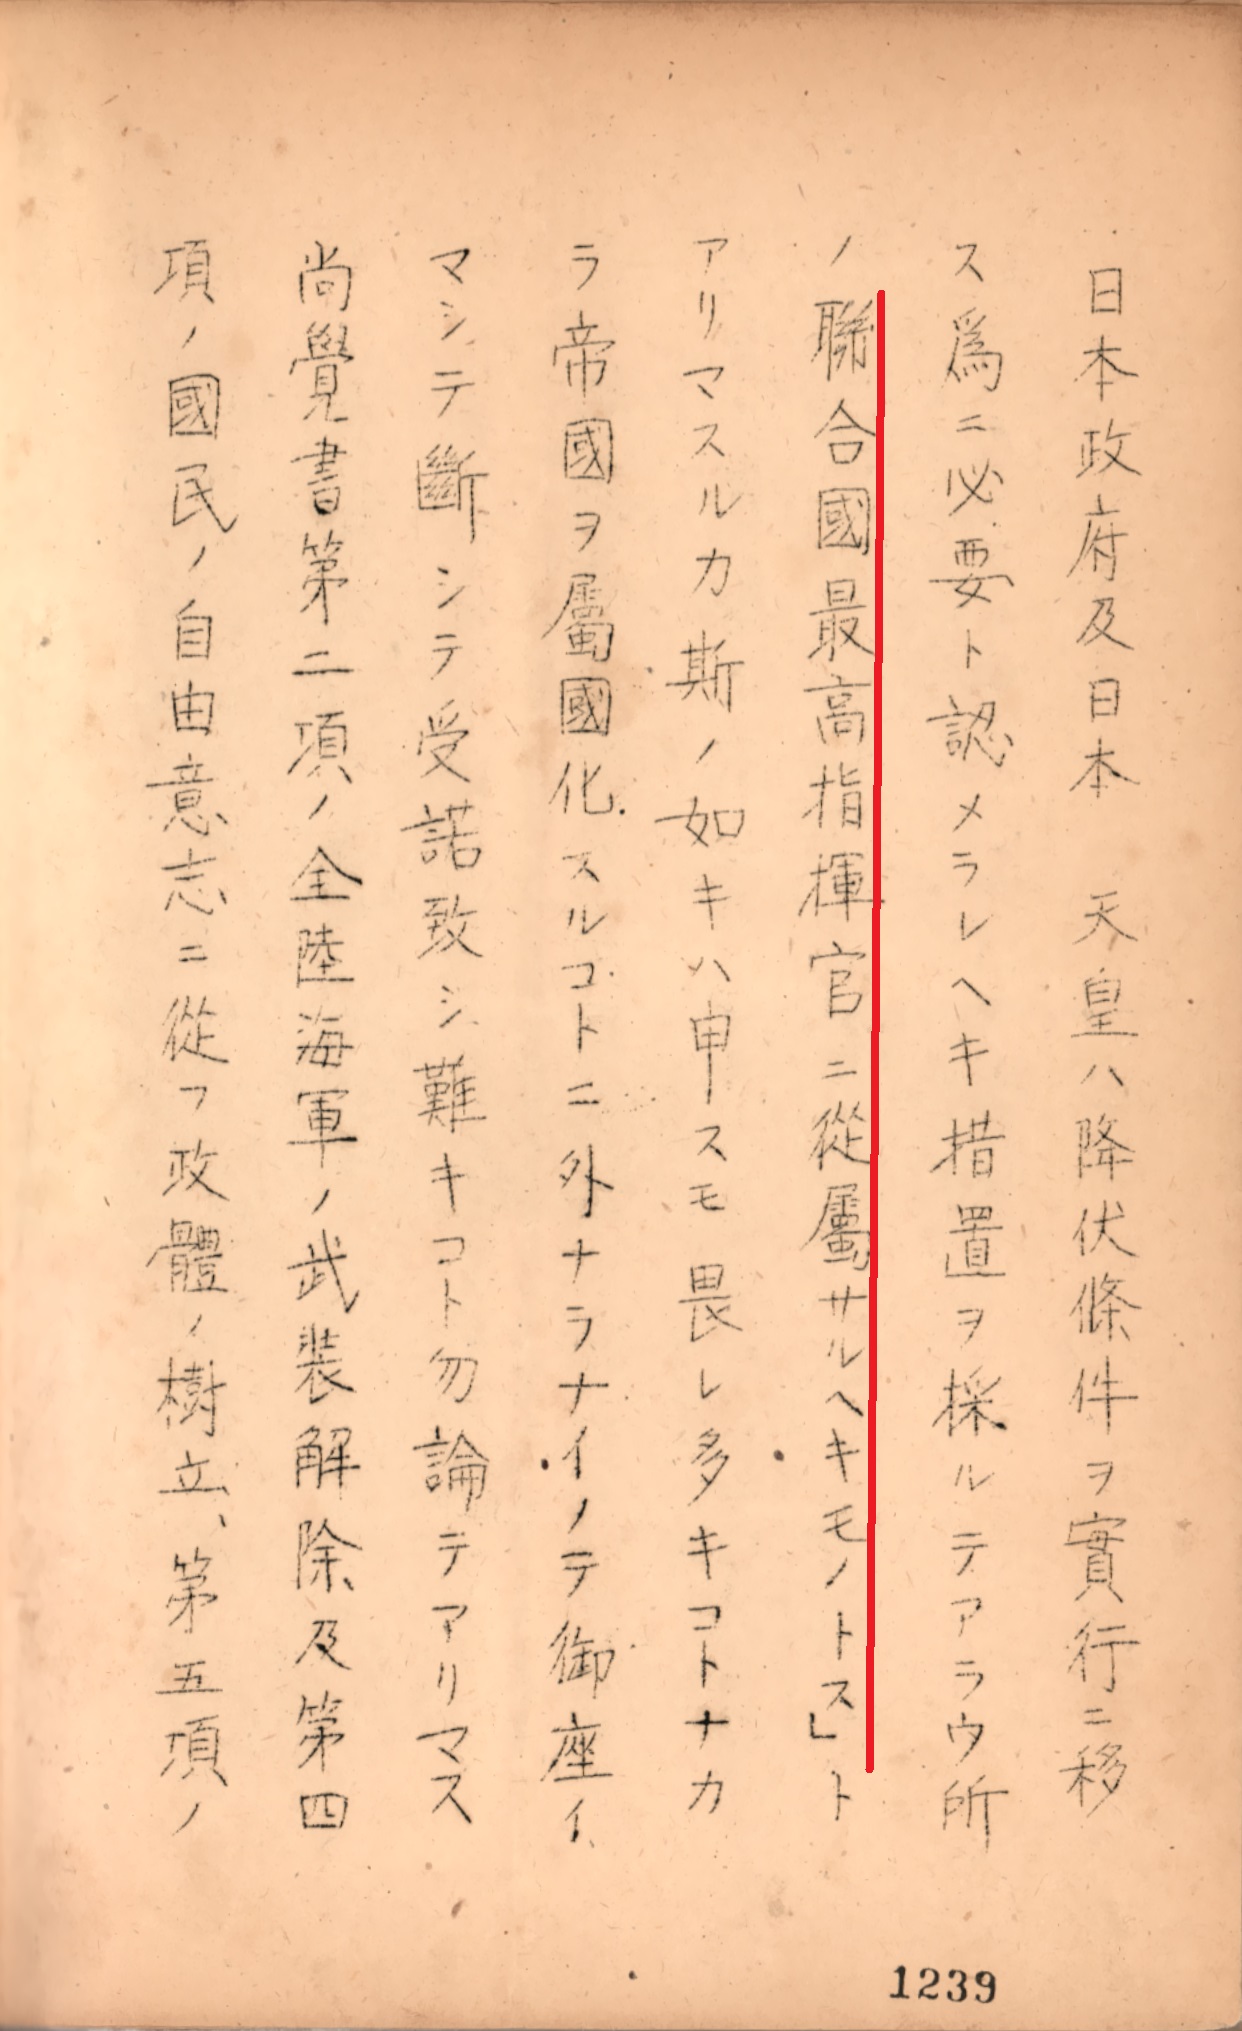 日本政府及日本　天皇ハ降伏條件ヲ實行ニ移
ス爲ニ必要ト認メラレヘキ措置ヲ採ルテアラウ所
ノ聯合國最高指揮官ニ從屬サルヘキモノトス」ト
アリマスルカ斯ノ如キハ申スモ畏レ多キコトナカ
ラ帝國ヲ屬國化スルコトニ外ナラナイノテ御座イ
マシテ斷シテ受諾致シ難キコト勿論テアリマス
尚覺書第二項ノ全陸海軍ノ武装解除及第四
項ノ國民ノ自由意志ニ從フ政體ノ樹立、第五項ノ
1239